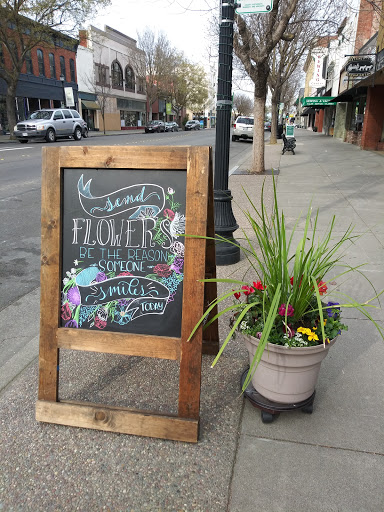 send
FLOWERS
BE THE REASON
SOMEONE
smiles
TODAY